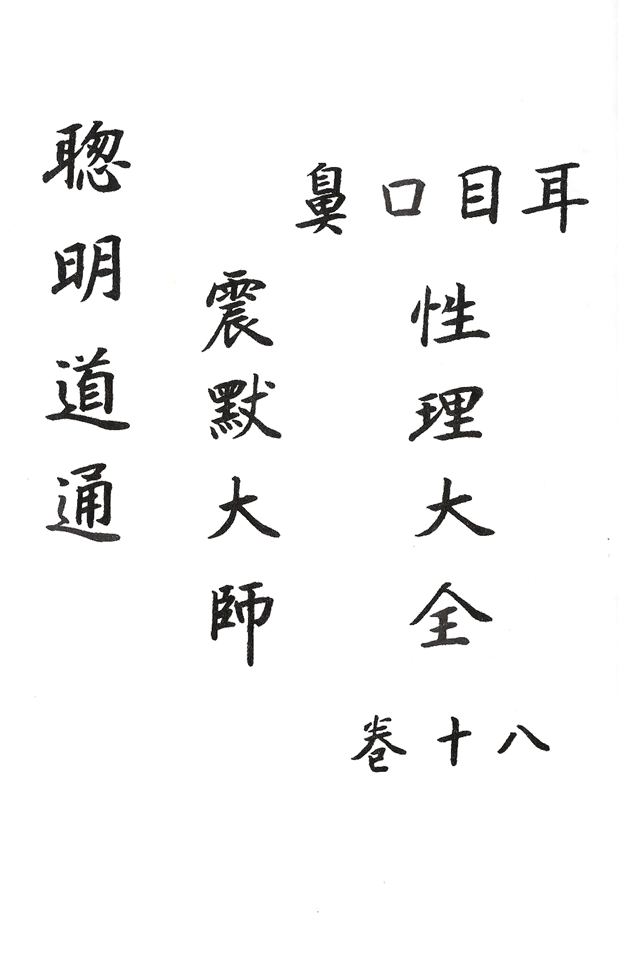 耳目口鼻
性理大全
卷十八
震默大師
聦明道通